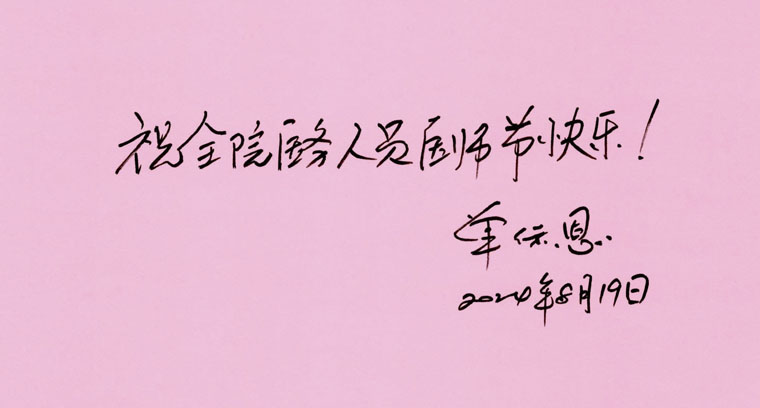 祝全院医务人员医师节快乐！
单保恩
2024年8月19日